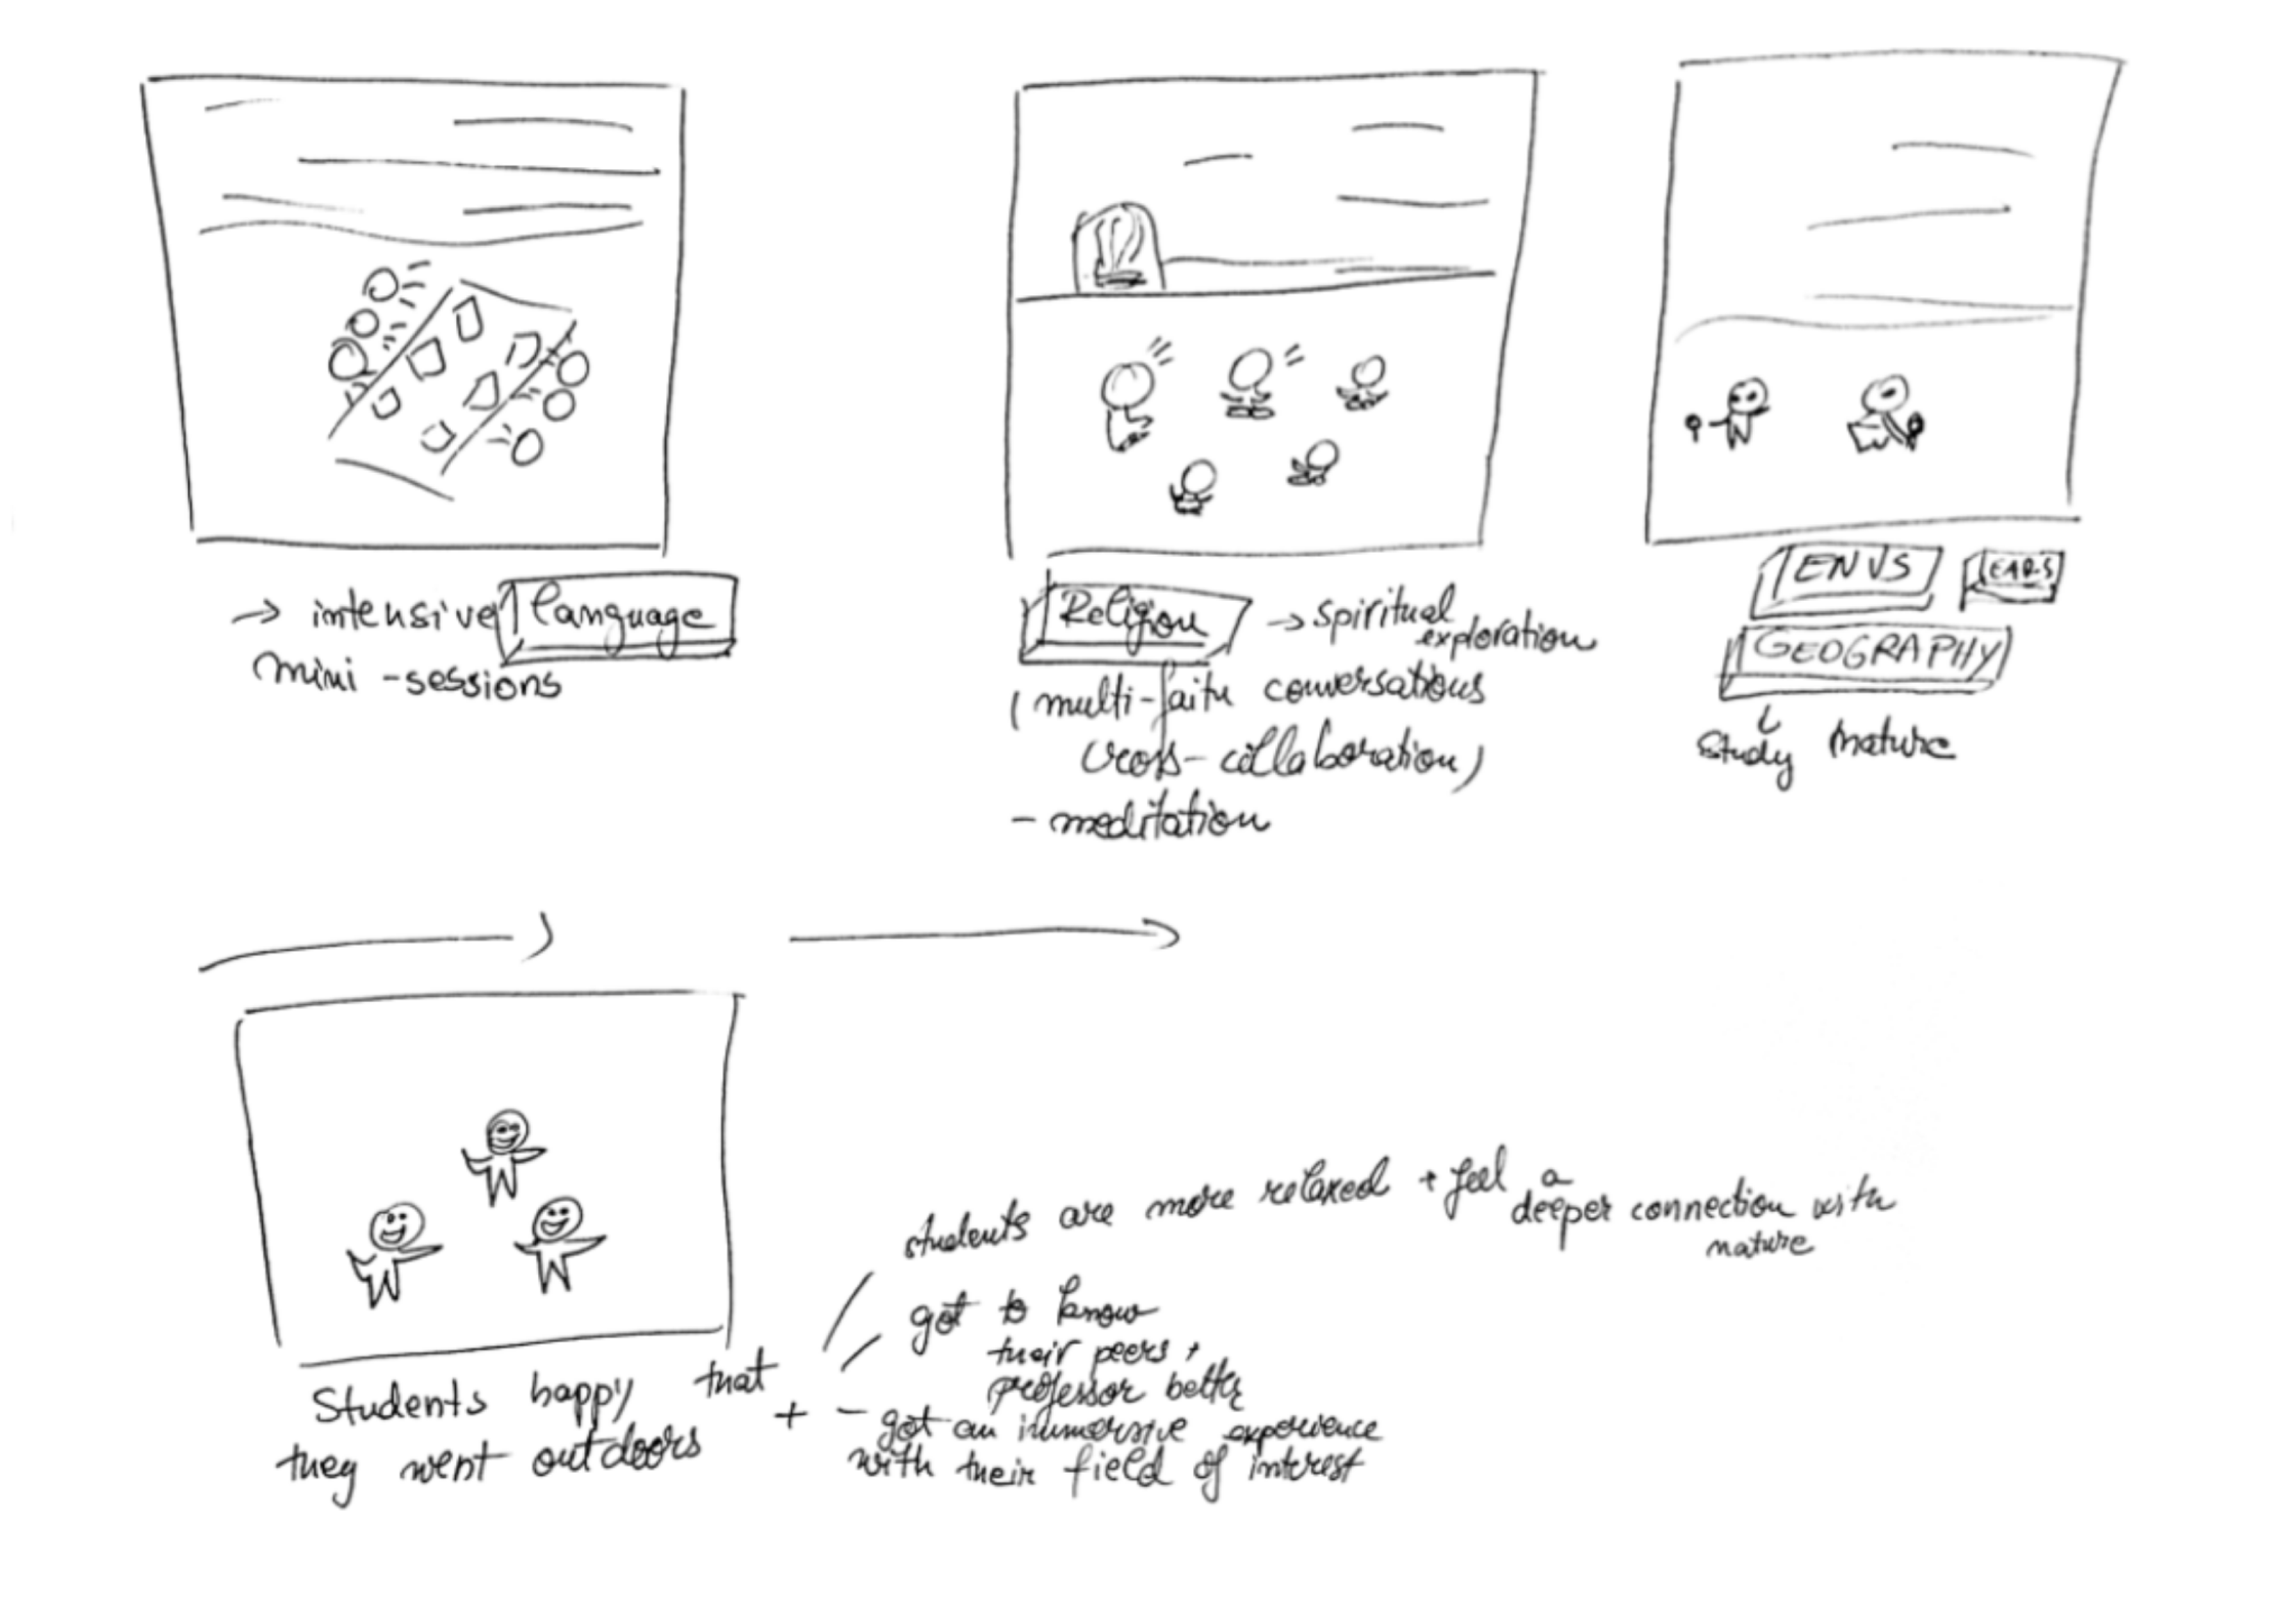 → intensive language
mini - sessions
Religion → spiritual
exploration
( multi-faith conversations
cross - collaboration)
- meditation
ENVS EARS
GEOGRAPHY
Study nature
Students happy that
they went outdoors
+
students are more relaxed + feel a
deeper connection with
nature
got to know
their peers +
professor better
- got an immersive experience
with their field of interest